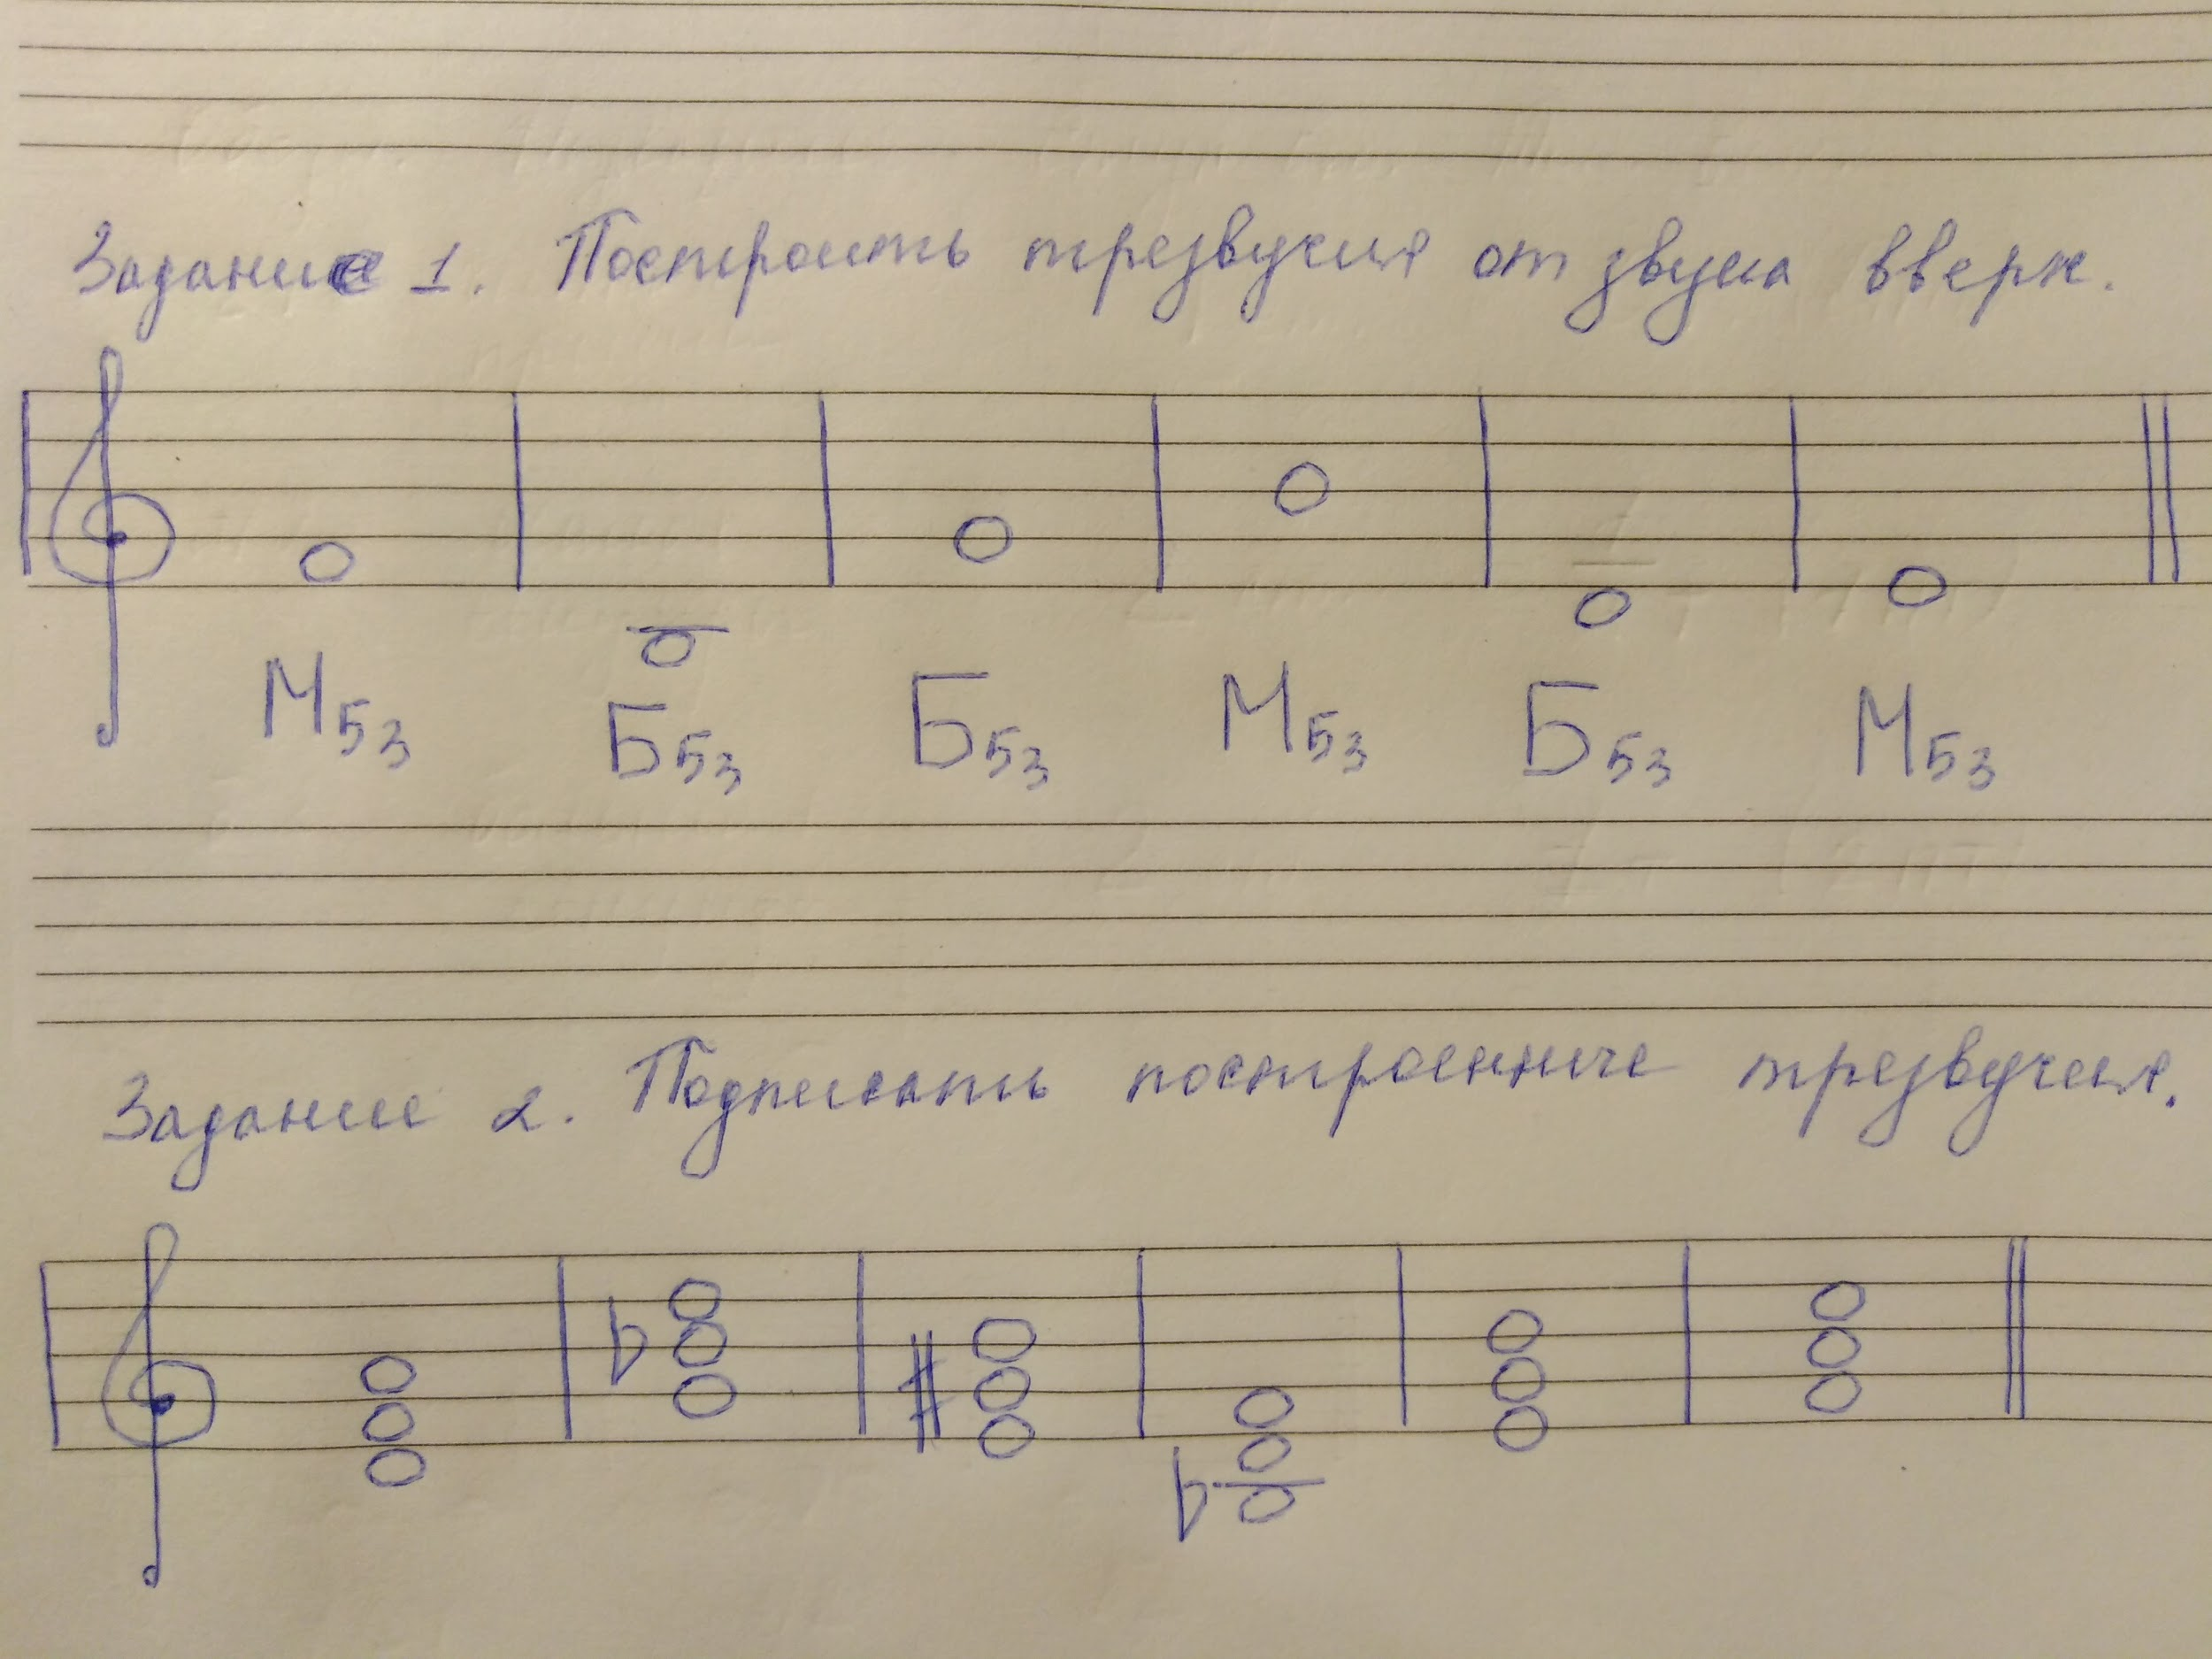 Задание 1. Построить трезвучия от звука вверх.
М53 Б53 Б53 М53 Б53 М53
Задание 2. Подписать построенные трезвучия.